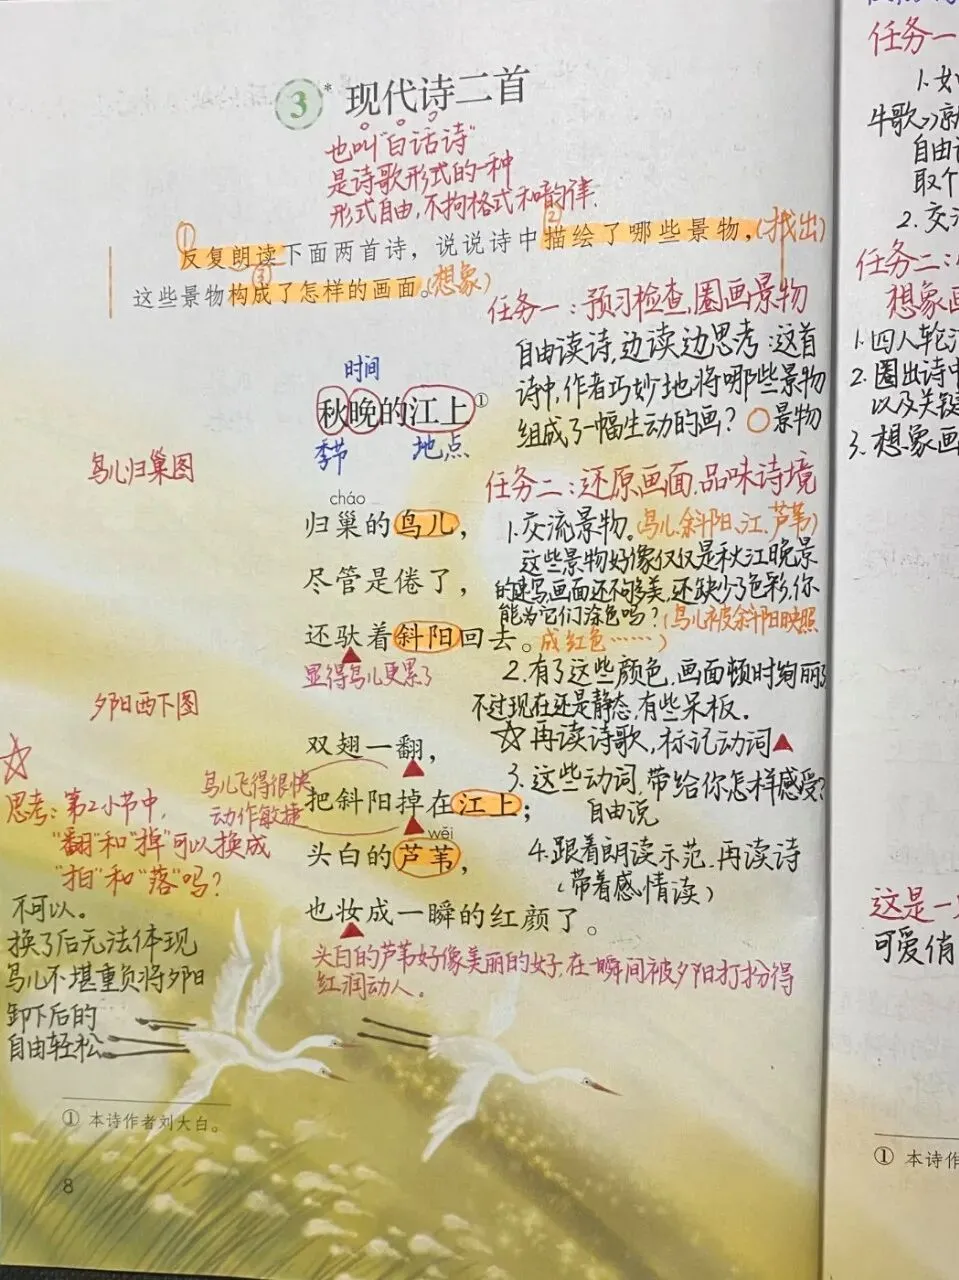 3* 现代诗二首
也叫"白话诗"
是诗歌形式的一种
形式自由,不拘格式和韵律.
① ②
反复朗读下面两首诗，说说诗中描绘了哪些景物，(找出)
③
这些景物构成了怎样的画面。(想象)
任务一：预习检查,圈画景物
自由读诗,边读边思考：这首
诗中,作者巧妙地将哪些景物
组成了一幅生动的画？○景物
时间
秋晚的江上①
季节 地点
鸟儿归巢图
任务二：还原画面,品味诗境
cháo
归巢的鸟儿，
尽管是倦了，
还驮着斜阳回去。
显得鸟儿更累了
1.交流景物。(鸟儿、斜阳、江、芦苇)
这些景物好像仅仅是秋江晚景
的速写,画面还不够美,还缺少了色彩,你
能为它们涂色吗？(鸟儿被斜阳映照
成红色……)
2.有了这些颜色,画面顿时绚丽了
不过现在还是静态,有些呆板.
☆再读诗歌,标记动词▲
3.这些动词,带给你怎样感受？
自由说
4.跟着朗读示范,再读诗
(带着感情读)
夕阳西下图
双翅一翻，
把斜阳掉在江上；
wěi
头白的芦苇，
也妆成一瞬的红颜了。
鸟儿飞得很快
动作敏捷
头白的芦苇好像美丽的女子,在一瞬间被夕阳打扮得
红润动人。
☆
思考：第2小节中,
"翻"和"掉"可以换成
"拍"和"落"吗？
不可以。
换了后无法体现
鸟儿不堪重负将夕阳
卸下后的
自由轻松
① 本诗作者刘大白。
8
任务一
1.如
牛歌》
自由
取个
2.交
任务二：
想象画
1.四人轮
2.圈出诗中
以及关键
3.想象画
这是一
可爱俏
① 本诗作